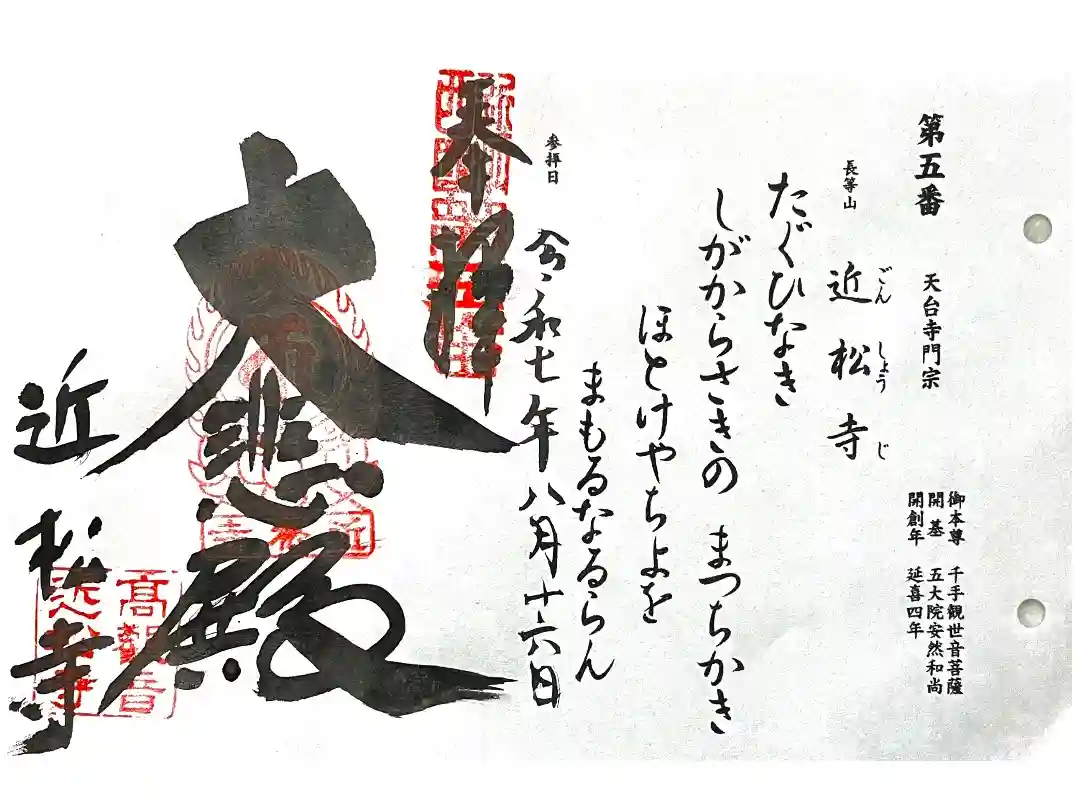 第五番
天台寺門宗
御本尊 千手観世音菩薩
開基 五大院安然和尚
開創年 延喜四年
長等山
近松寺
ごんしょうじ
たぐひなき
しがからさきの まつちかき
ほとけやちよを
まもるなるらん
参拝日
令和七年八月十六日
奉拝
大悲殿
近松寺